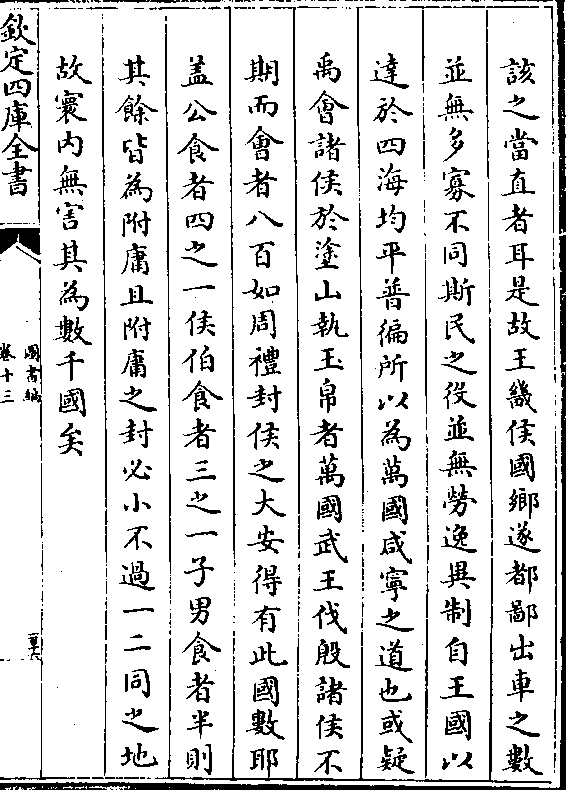 該之當直者耳是故王畿侯國鄉遂都鄙出車之數
並無多寡不同斯民之役並無勞逸異制自王國以
達於四海均平普徧所以為萬國咸寧之道也或疑
禹會諸侯於塗山執玉帛者萬國武王伐殷諸侯不
期而會者八百如周禮封侯之大安得有此國數耶
盖公食者四之一侯伯食者三之一子男食者半則
其餘皆為附庸且附庸之封必小不過一二同之地
故寰内無害其為數千國矣
欽定四庫全書
圖書編
卷十三